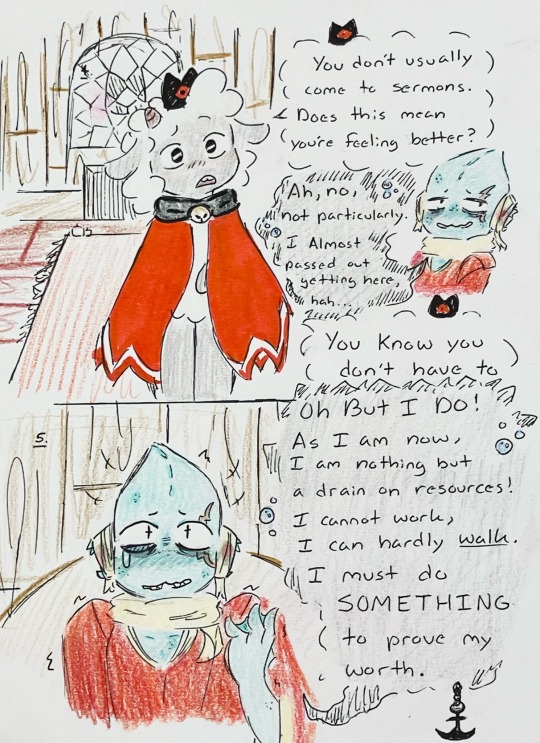 You don't usually
come to sermons.
Does this mean
you're feeling better?
Ah, no,
not particularly.
I Almost
passed out
getting here,
hah...
You Know you
don't have to
Oh But I Do!
As I am now,
I am nothing but
a drain on resources!
I cannot work,
I can hardly walk.
I must do
SOMETHING
to prove my
worth.
5.